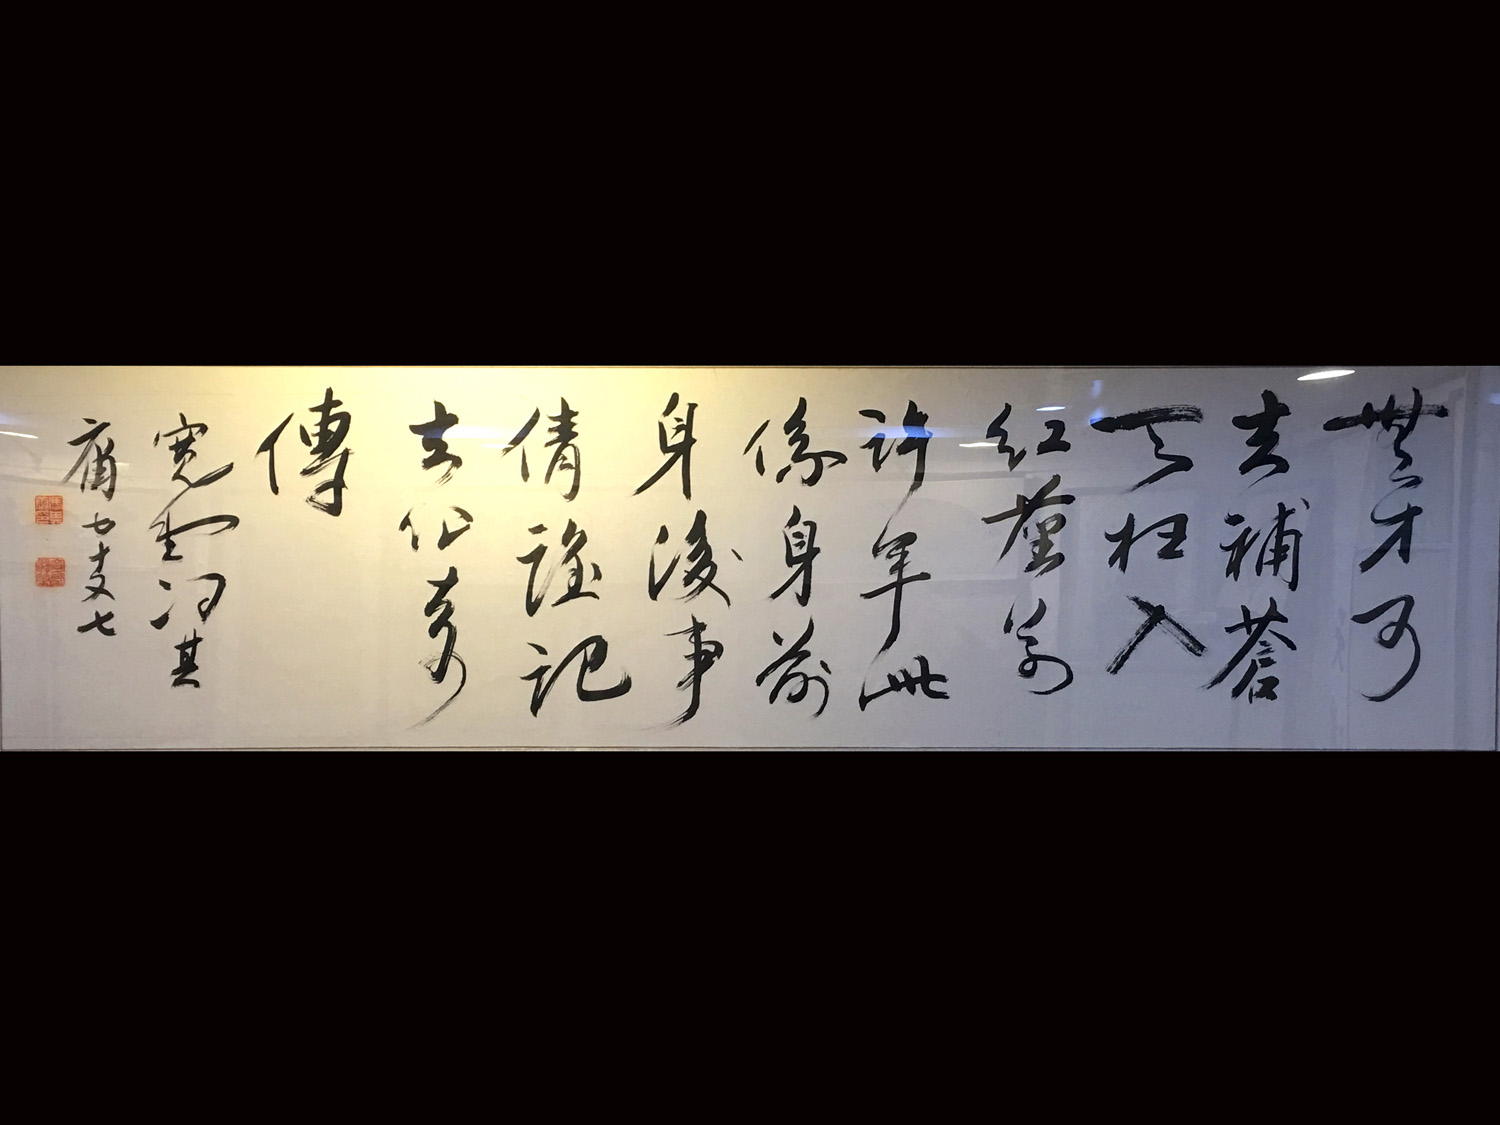 無才可
去補蒼
天枉入
紅塵若
許年此
係身前
身後事
倩誰記
去作奇
傳
寬堂馮其
庸七十又七